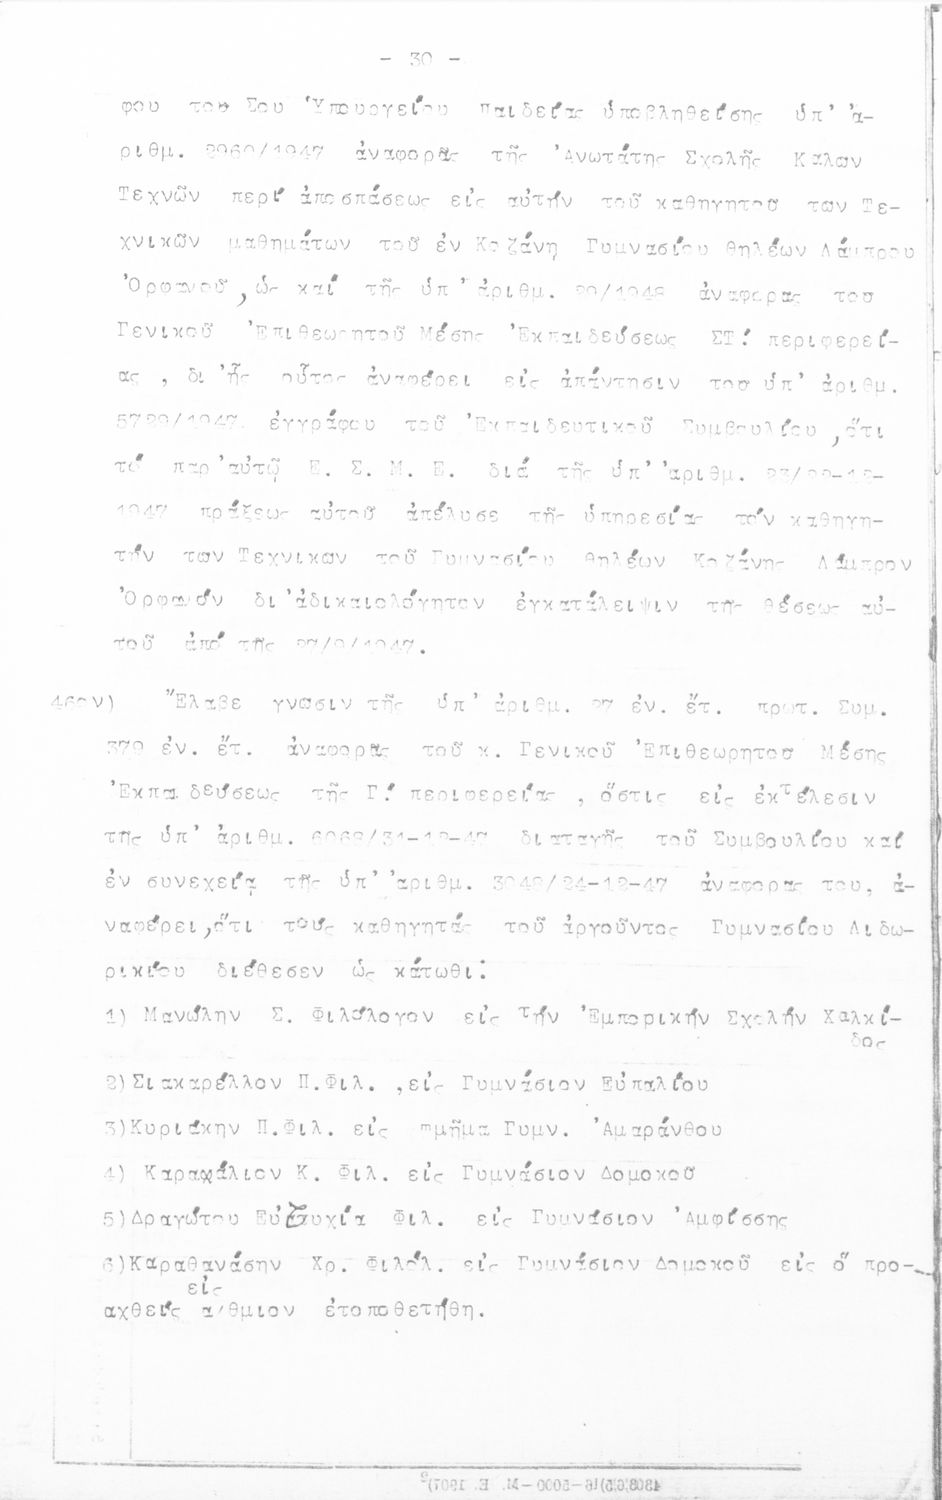 - 30 -
φου του Σου Ὑπουργείου Παιδείας ὑποβληθείσης ὑπ' ἀ-
ριθμ. 2960/1947 ἀναφορᾶς τῆς Ἀνωτάτης Σχολῆς Καλων
Τεχνῶν περί ἀποσπάσεως εἰς αὐτήν τοῦ καθηγητοῦ των Τε-
χνικῶν μαθημάτων τοῦ ἐν Κοζάνῃ Γυμνασίου θηλέων Λάμπρου
Ὀρφανοῦ, ὡς καί τῆς ὑπ' ἀριθμ. 20/1948 ἀναφορας του
Γενικοῦ Ἐπιθεωρητοῦ Μέσης Ἐκπαιδεύσεως ΣΤ! περιφερεί-
ας , δι ἧς οὗτος ἀναφέρει εἰς ἀπάντησιν του ὑπ' ἀριθμ.
5729/1947. ἐγγράφου τοῦ Ἐκπαιδευτικοῦ Συμβουλίου ,ὅτι
τό παρ'αὐτῷ Ε. Σ. Μ. Ε. διά τῆς ὑπ' ἀριθμ. 23/22-12-
1947 πράξεως αὐτοῦ ἀπέλυσε τῆς ὑπηρεσίας τόν καθηγη-
τήν των Τεχνικων τοῦ Γυμνασίου θηλέων Κοζάνης Λάμπρον
Ὀρφανόν δι'ἀδικαιολόγητον ἐγκατάλειψιν τῆς θέσεως αὐ-
τοῦ ἀπό τῆς 27/9/1947.
46ον) Ἔλαβε γνωσιν τῆς ὑπ' ἀριθμ. 27 ἐν. ἔτ. πρωτ. Συμ.
379 ἐν. ἔτ. ἀναφορᾶς τοῦ κ. Γενικοῦ Ἐπιθεωρητου Μέσης
Ἐκπαιδεύσεως τῆς Γ! περιφερείας , ὅστις εἰς ἐκτέλεσιν
τῆς ὑπ' ἀριθμ. 6068/31-12-47 διαταγῆς τοῦ Συμβουλίου καί
ἐν συνεχείᾳ τῆς ὑπ' ἀριθμ. 3048/24-12-47 ἀναφορας του, ἀ-
ναφέρει,ὅτι τούς καθηγητάς τοῦ ἀργοῦντος Γυμνασίου Λιδω-
ρικίου διέθεσεν ὡς κάτωθι:
1) Μανώλην Σ. Φιλόλογον εἰς τήν Ἐμπορικήν Σχολήν Χαλκί-
δος
2)Σιακαρέλλον Π.Φιλ. ,εἰς Γυμνάσιον Εὐπαλίου
3)Κυριάκην Π.Φιλ. εἰς τμῆμα Γυμν. Ἀμαράνθου
4) Καραφάλιον Κ. Φιλ. εἰς Γυμνάσιον Δομοκοῦ
5)Δραγώτου Εὐτυχία Φιλ. εἰς Γυμνάσιον Ἀμφίσσης
6)Καραθανάσην Χρ. Φιλόλ. εἰς Γυμνάσιον Δομοκοῦ εἰς ὅ προ-
εἰς
αχθείς α/θμιον ἐτοποθετήθη.